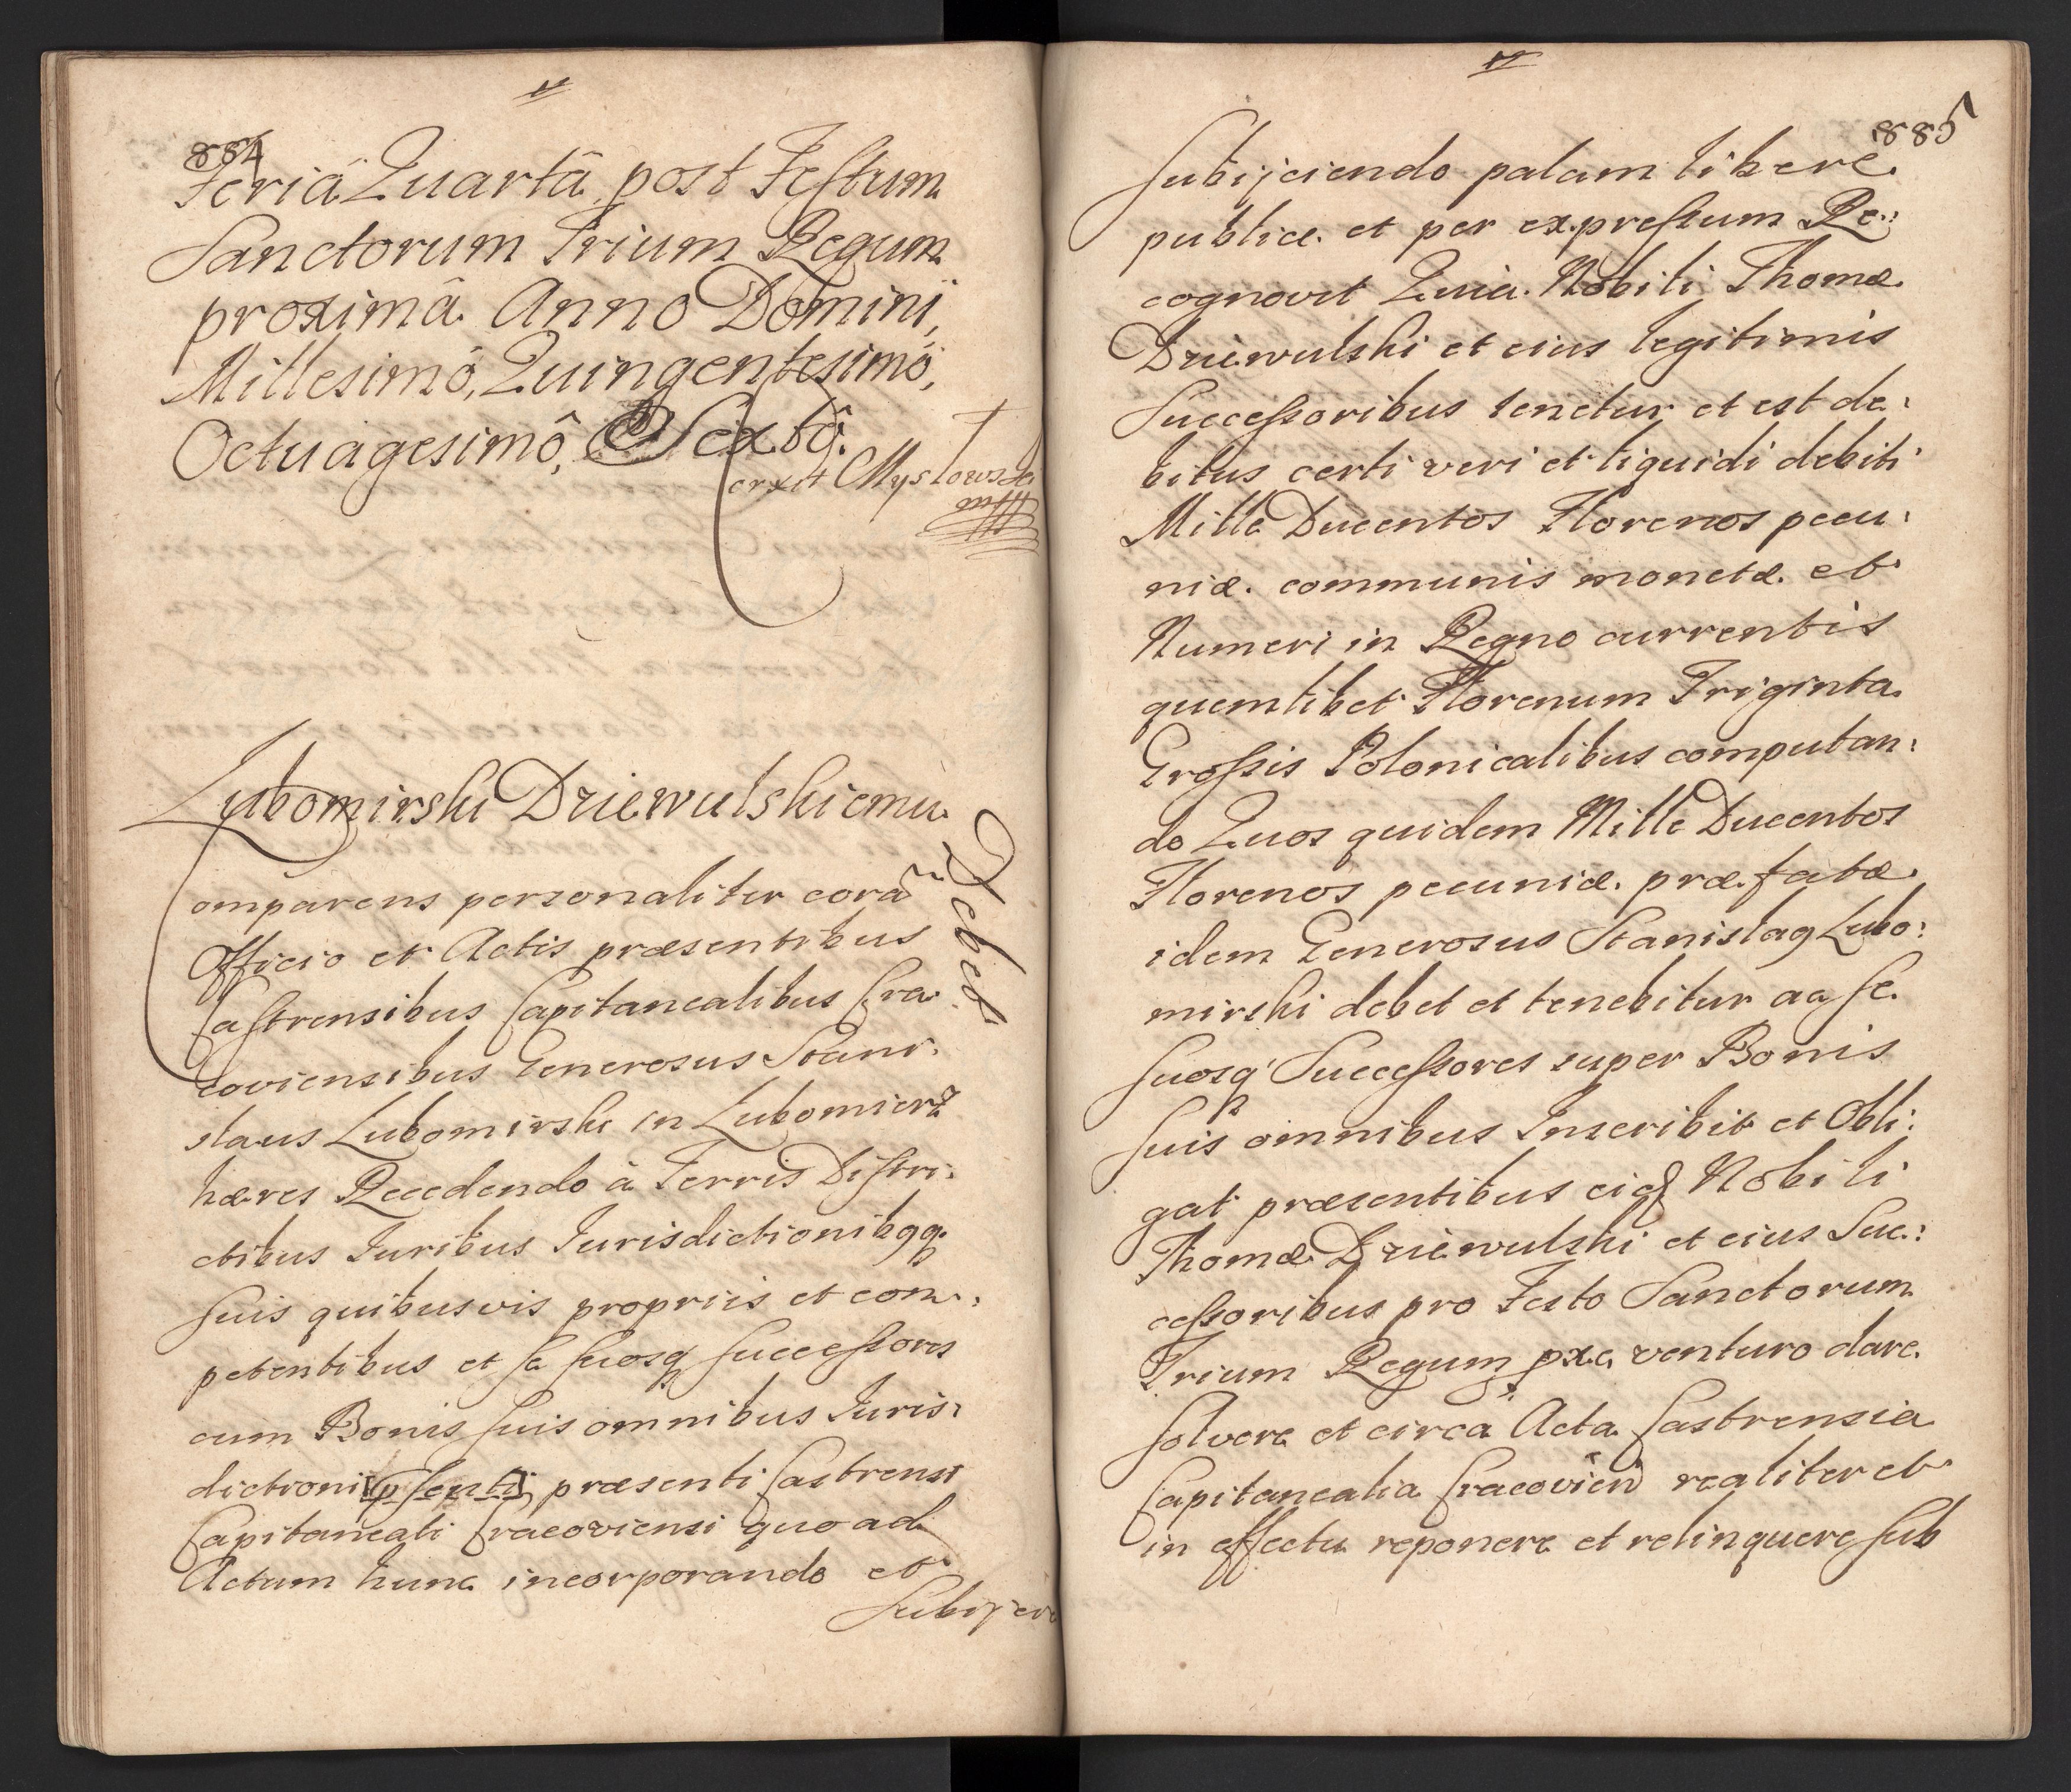 884
Feriâ Quartâ post Festum
Sanctorum Trium Regum
proximâ Anno Domini,
Millesimô, Quingentesimô,
Octuagesimô, Sextô.
Lubomirski Dziewulskiemu
Debet
omparens personaliter corã
Officio et Actis præsentibus
Castrensibus Capitanealibus Cra:
coviensibus Generosus Stani:
slaus Lubomirski in Lubomierz
hæres Recedendo à Terris Distri:
ctibus Juribus Jurisdictionibqq
suis quibusvis propriis et com:
petentibus et se suosq successores
cum Bonis suis omnibus Juris:
dictioni [psenti] præsenti Castrensi
Capitaneali Cracoviensi quo ad
Actum hunc incorporando et
Subijcien
885
Subijciendo palam libere
publice et per expressum Re:
cognovit Quia Nobili Thomæ
Dziewulski et eius legitimis
Successoribus tenetur et est de:
bitus certi veri et liquidi debiti
Mille Ducentos Florenos pecu:
niæ communis monetæ et
Numeri in Regno currentis
quemlibet Florenum Triginta
Grossis Polonicalibus computan:
do Quos quidem Mille Ducentos
Florenos pecuniæ præfatæ
idem Generosus Stanislaq Lubo:
mirski debet et tenebitur ac se
suosq Successores super Bonis
suis omnibus Inscribit et Obli:
gat præsentibus Nobili
Thomæ Dziewulski et eius Suc:
cessoribus pro Festo Sanctorum
Trium Regum pxe venturo dare
solvere et circa Acta Castrensia
Capitanealia Cracovien realiter et
in effectu reponere et relinquere sub